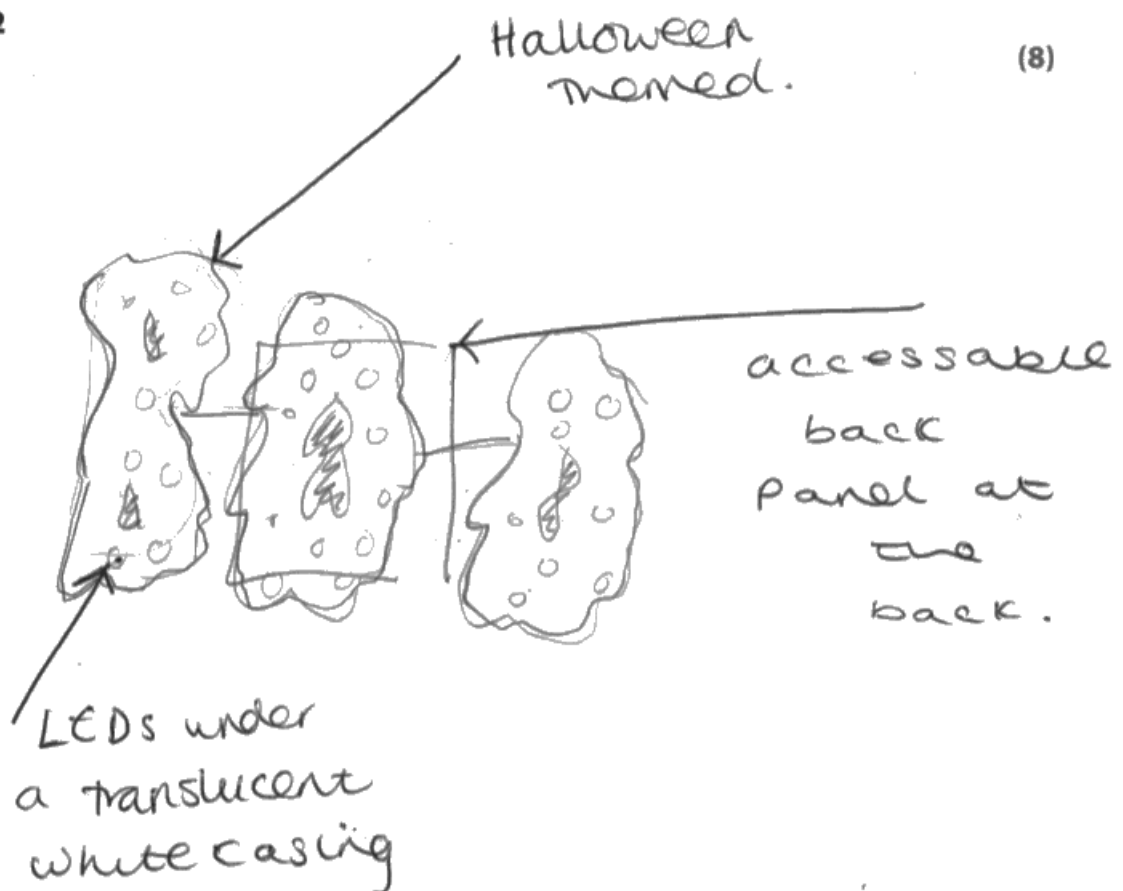 2
Halloween
(8)
Themed.
accessable
back
panel at
the
back.
LEDs under
a translucent
white casing